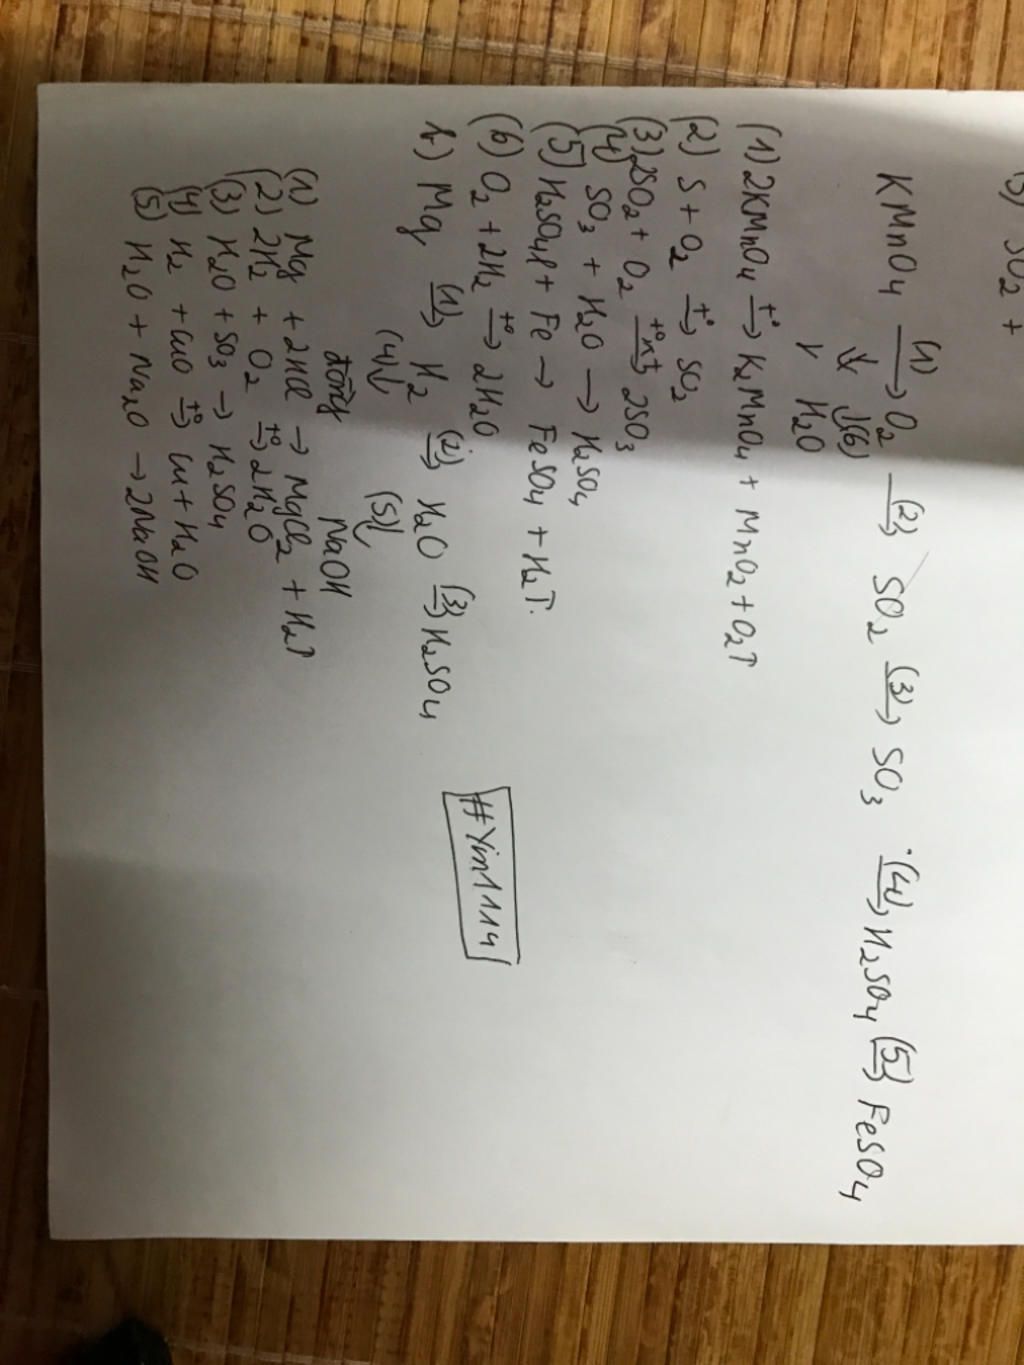 3) SO2 +
KMnO4 (1)→ O2 (2)→ SO2 (3)→ SO3 (4)→ H2SO4 (5)→ FeSO4
↓ ↓(6)
H2O
(1) 2KMnO4 t°→ K2MnO4 + MnO2 + O2↑
(2) S + O2 t°→ SO2
(3) 2SO2 + O2 t°xt→ 2SO3
(4) SO3 + H2O → H2SO4
(5) H2SO4l + Fe → FeSO4 + H2↑
(6) O2 + 2H2 t°→ 2H2O
b) Mg (1)→ H2 (2)→ H2O (3)→ H2SO4
(4)↓ (5)↓
đồng NaOH
(1) Mg + 2HCl → MgCl2 + H2↑
(2) 2H2 + O2 t°→ 2H2O
(3) H2O + SO3 → H2SO4
(4) H2 + CuO t°→ Cu + H2O
(5) H2O + Na2O → 2NaOH
#Yin1114